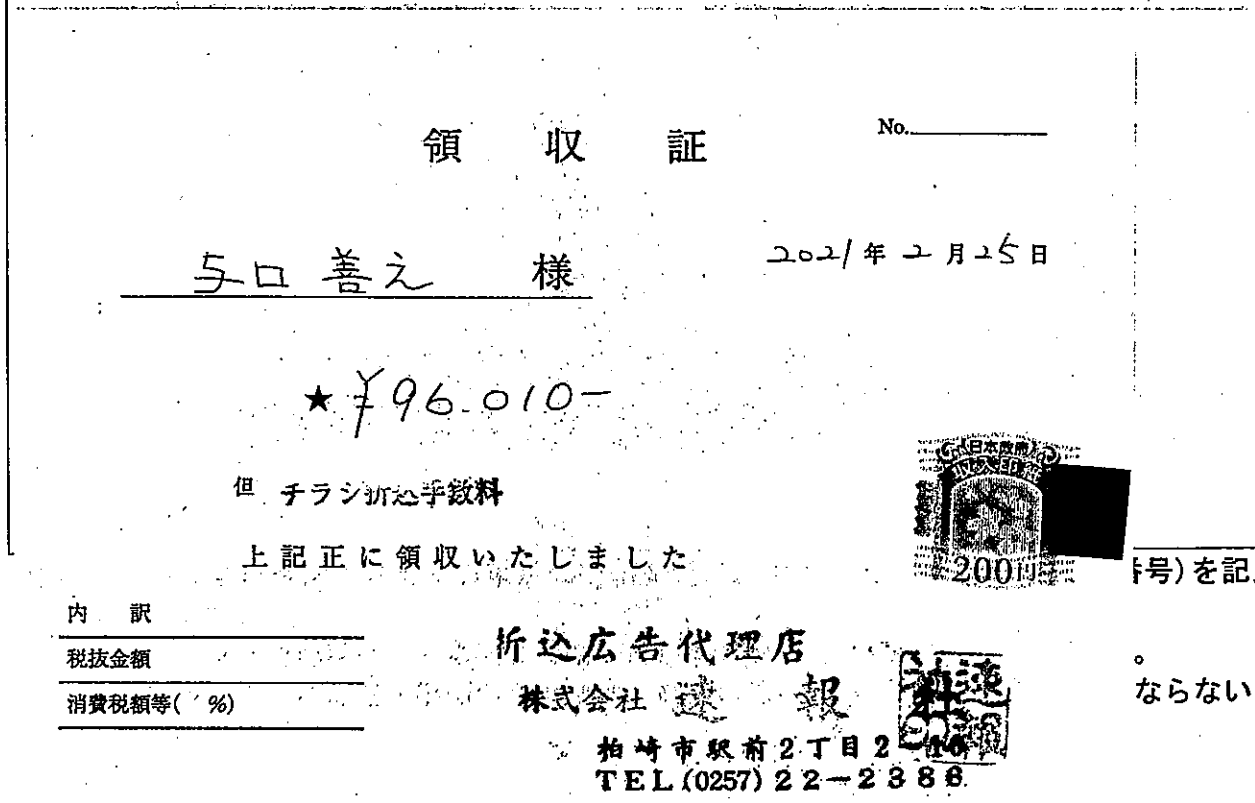 領 収 証
No.
与口 善え 様
2021年2月25日
★ ¥96.010-
但 チラシ折込手数料
上記正に領収いたしました
日本政府
200円
号)を記
内 訳
税抜金額
消費税額等( %)
折込広告代理店
株式会社 速 報 社
柏崎市駅前2丁目2-16
TEL(0257)22-2386
。
ならない